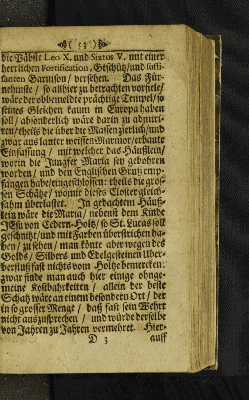 ( 53 )
die Päbste Leo X. und Sixtus V. mit einer
herrlichen Fortification, Geschütz/ und suffi-
santen Garnison/ versehen. Das Für-
nehmste / so allhier zu betrachten vorfiele/
wäre der obbemeldte prächtige Tempel/ so
seines Gleichen kaum in Europa haben
soll / absonderlich wäre darin zu admiri-
ren/ theils die über die Massen zierlich/ und
zwar aus lauter weissen Marmor/erbaute
Einfassung / mit welcher das Häuslein/
worin die Jungfer Maria sey gebohren
worden / und den Englischen Gruß emp-
fangen habe/ eingeschlossen: theils die gros-
sen Schätze/ womit dieses Closter gleich-
sahm überlastet. In gedachtem Häuß-
lein wäre die Maria/ nebenst dem Kinde
JEsu von Cedern-Holtz/ so St. Lucas soll
geschnitzt/ und mit Farben überstrichen ha-
ben / zu sehen / man könte aber wegen des
Golds / Silbers und Edelgesteinen Uber-
fluß fast nichts vom Holtze bemercken:
zwar finde man auch hier einige ohnge-
meine Kostbahrkeiten / allein der beste
Schatz wäre an einem besondern Ort / der
in so grosser Menge / daß sein Wehrt
nicht auszusprechen / und würde derselbe
von Jahren zu Jahren vermehret. Hier-
D 3 auff